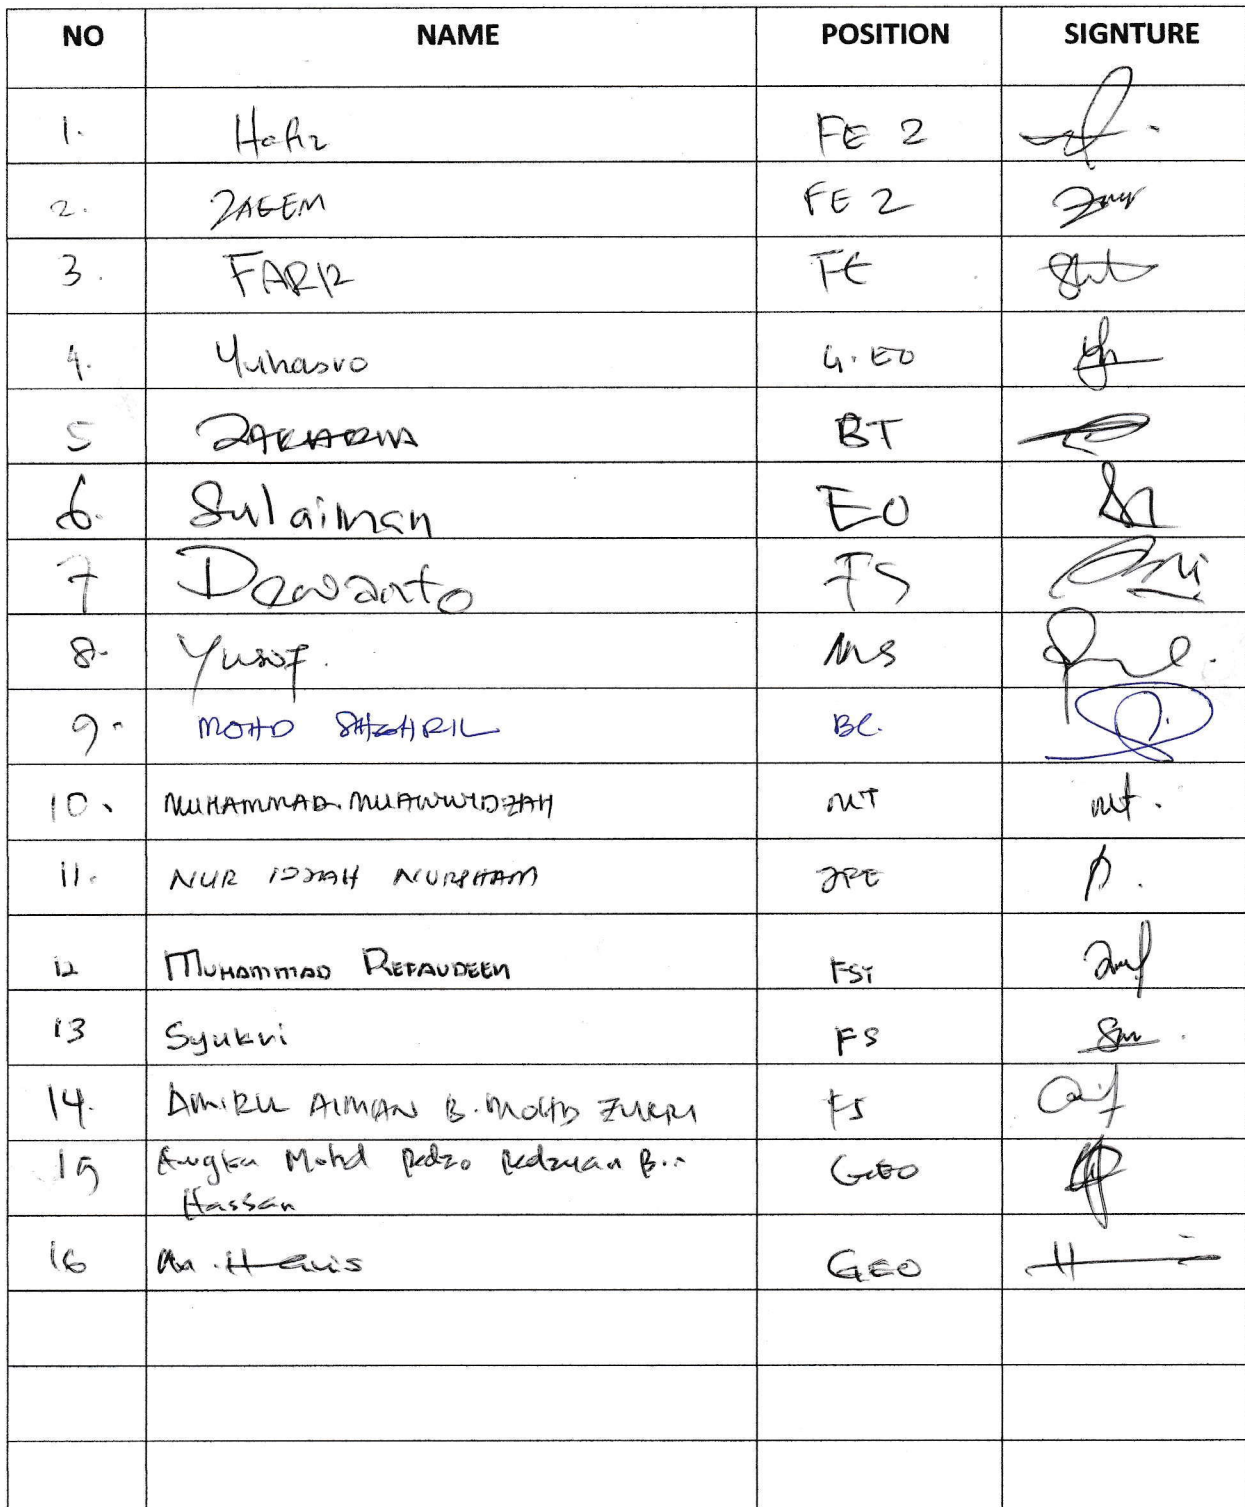 NO NAME POSITION SIGNTURE
1. Hafiz FE 2
2. ZAGEM FE 2
3. FARIZ FE
4. Yuhasro G.EO
5 ZAKARIA BT
6. Sulaiman EO
7 Dewanto FS
8. Yusof. MS
9. MOHD SHAHRIL BC.
10. MUHAMMAD MUAWWIDZAH MT mt.
11. NUR IZZAH NURSHAM
12 MUHAMMAD REFAUDEEN FST
13 Syukri FS
14. AMIRUL AIMAN B. MOHD ZUKRI FS
15 Mohd Redzuan B.
Hassan GEO
16 GEO